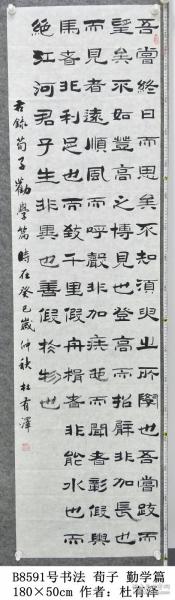 吾嘗終日而思矣不如須臾之所學也吾嘗跂而
望矣不如登高之博見也登高而招臂非加長也
而見者遠順風而呼聲非加疾也而聞者彰假輿
馬者非利足也而致千里假舟楫者非能水也而
絕江河君子生非異也善假於物也
右錄荀子勸學篇時在癸巳歲仲秋杜有澤
B8591号书法 荀子 勤学篇
180×50cm 作者：杜有泽